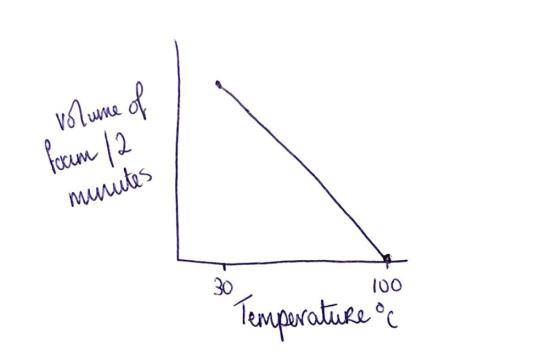 Volume of
foam / 2
minutes
30
100
Temperature °C